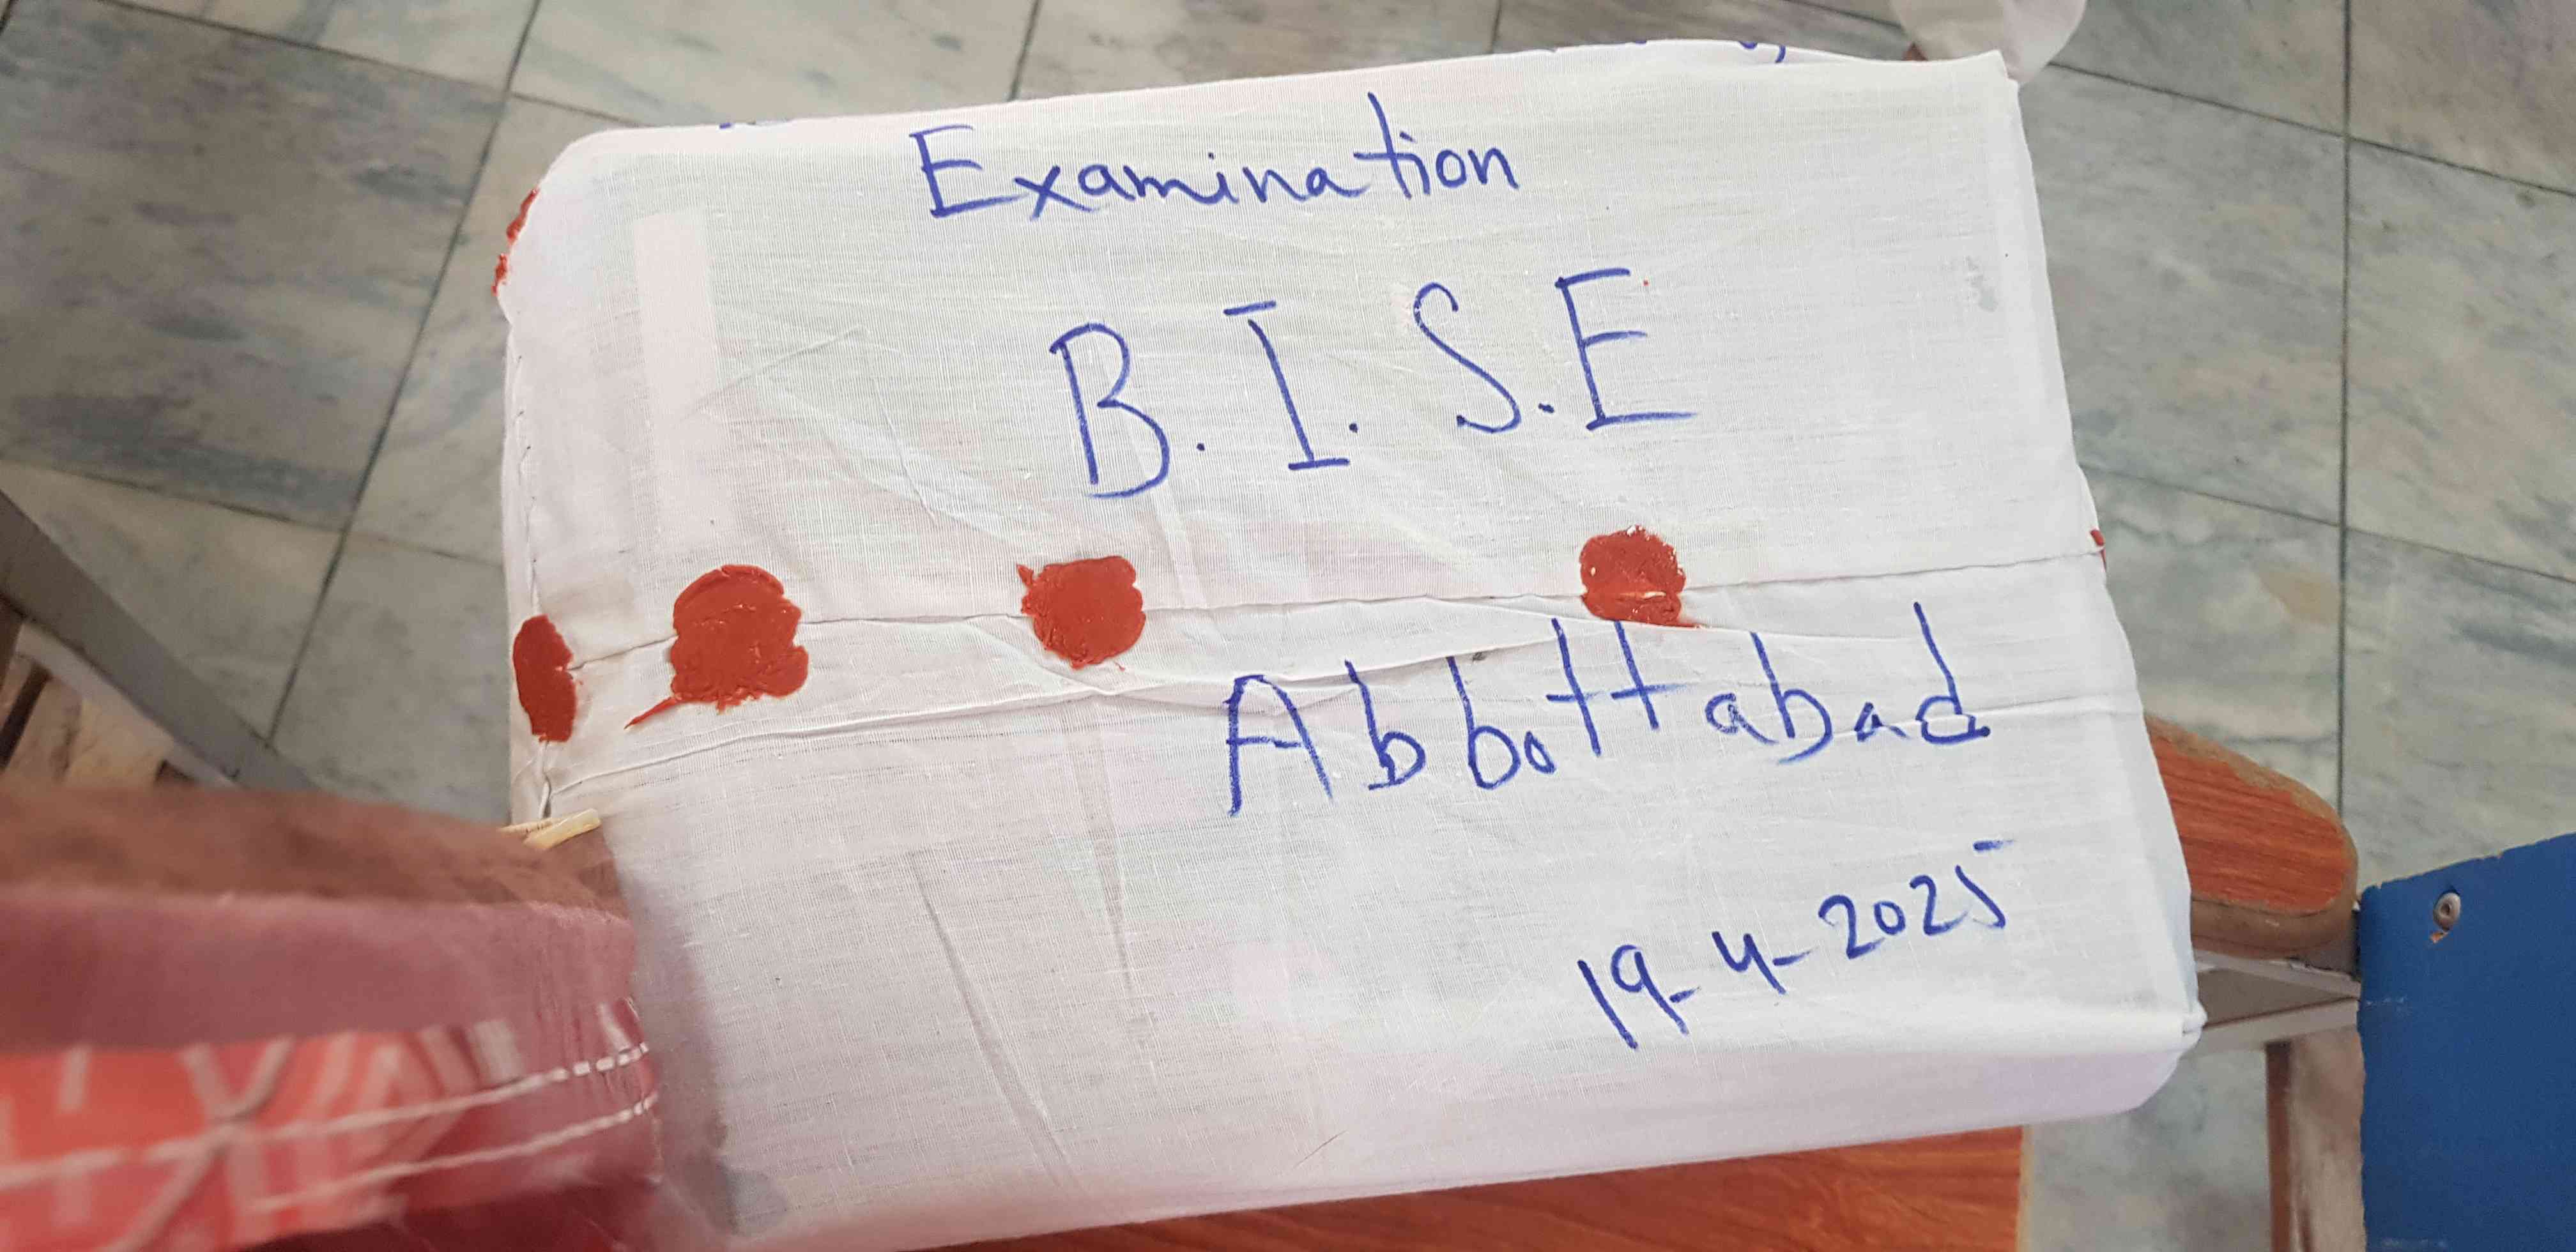 Examination
B.I.S.E
Abbottabad
19-4-2025